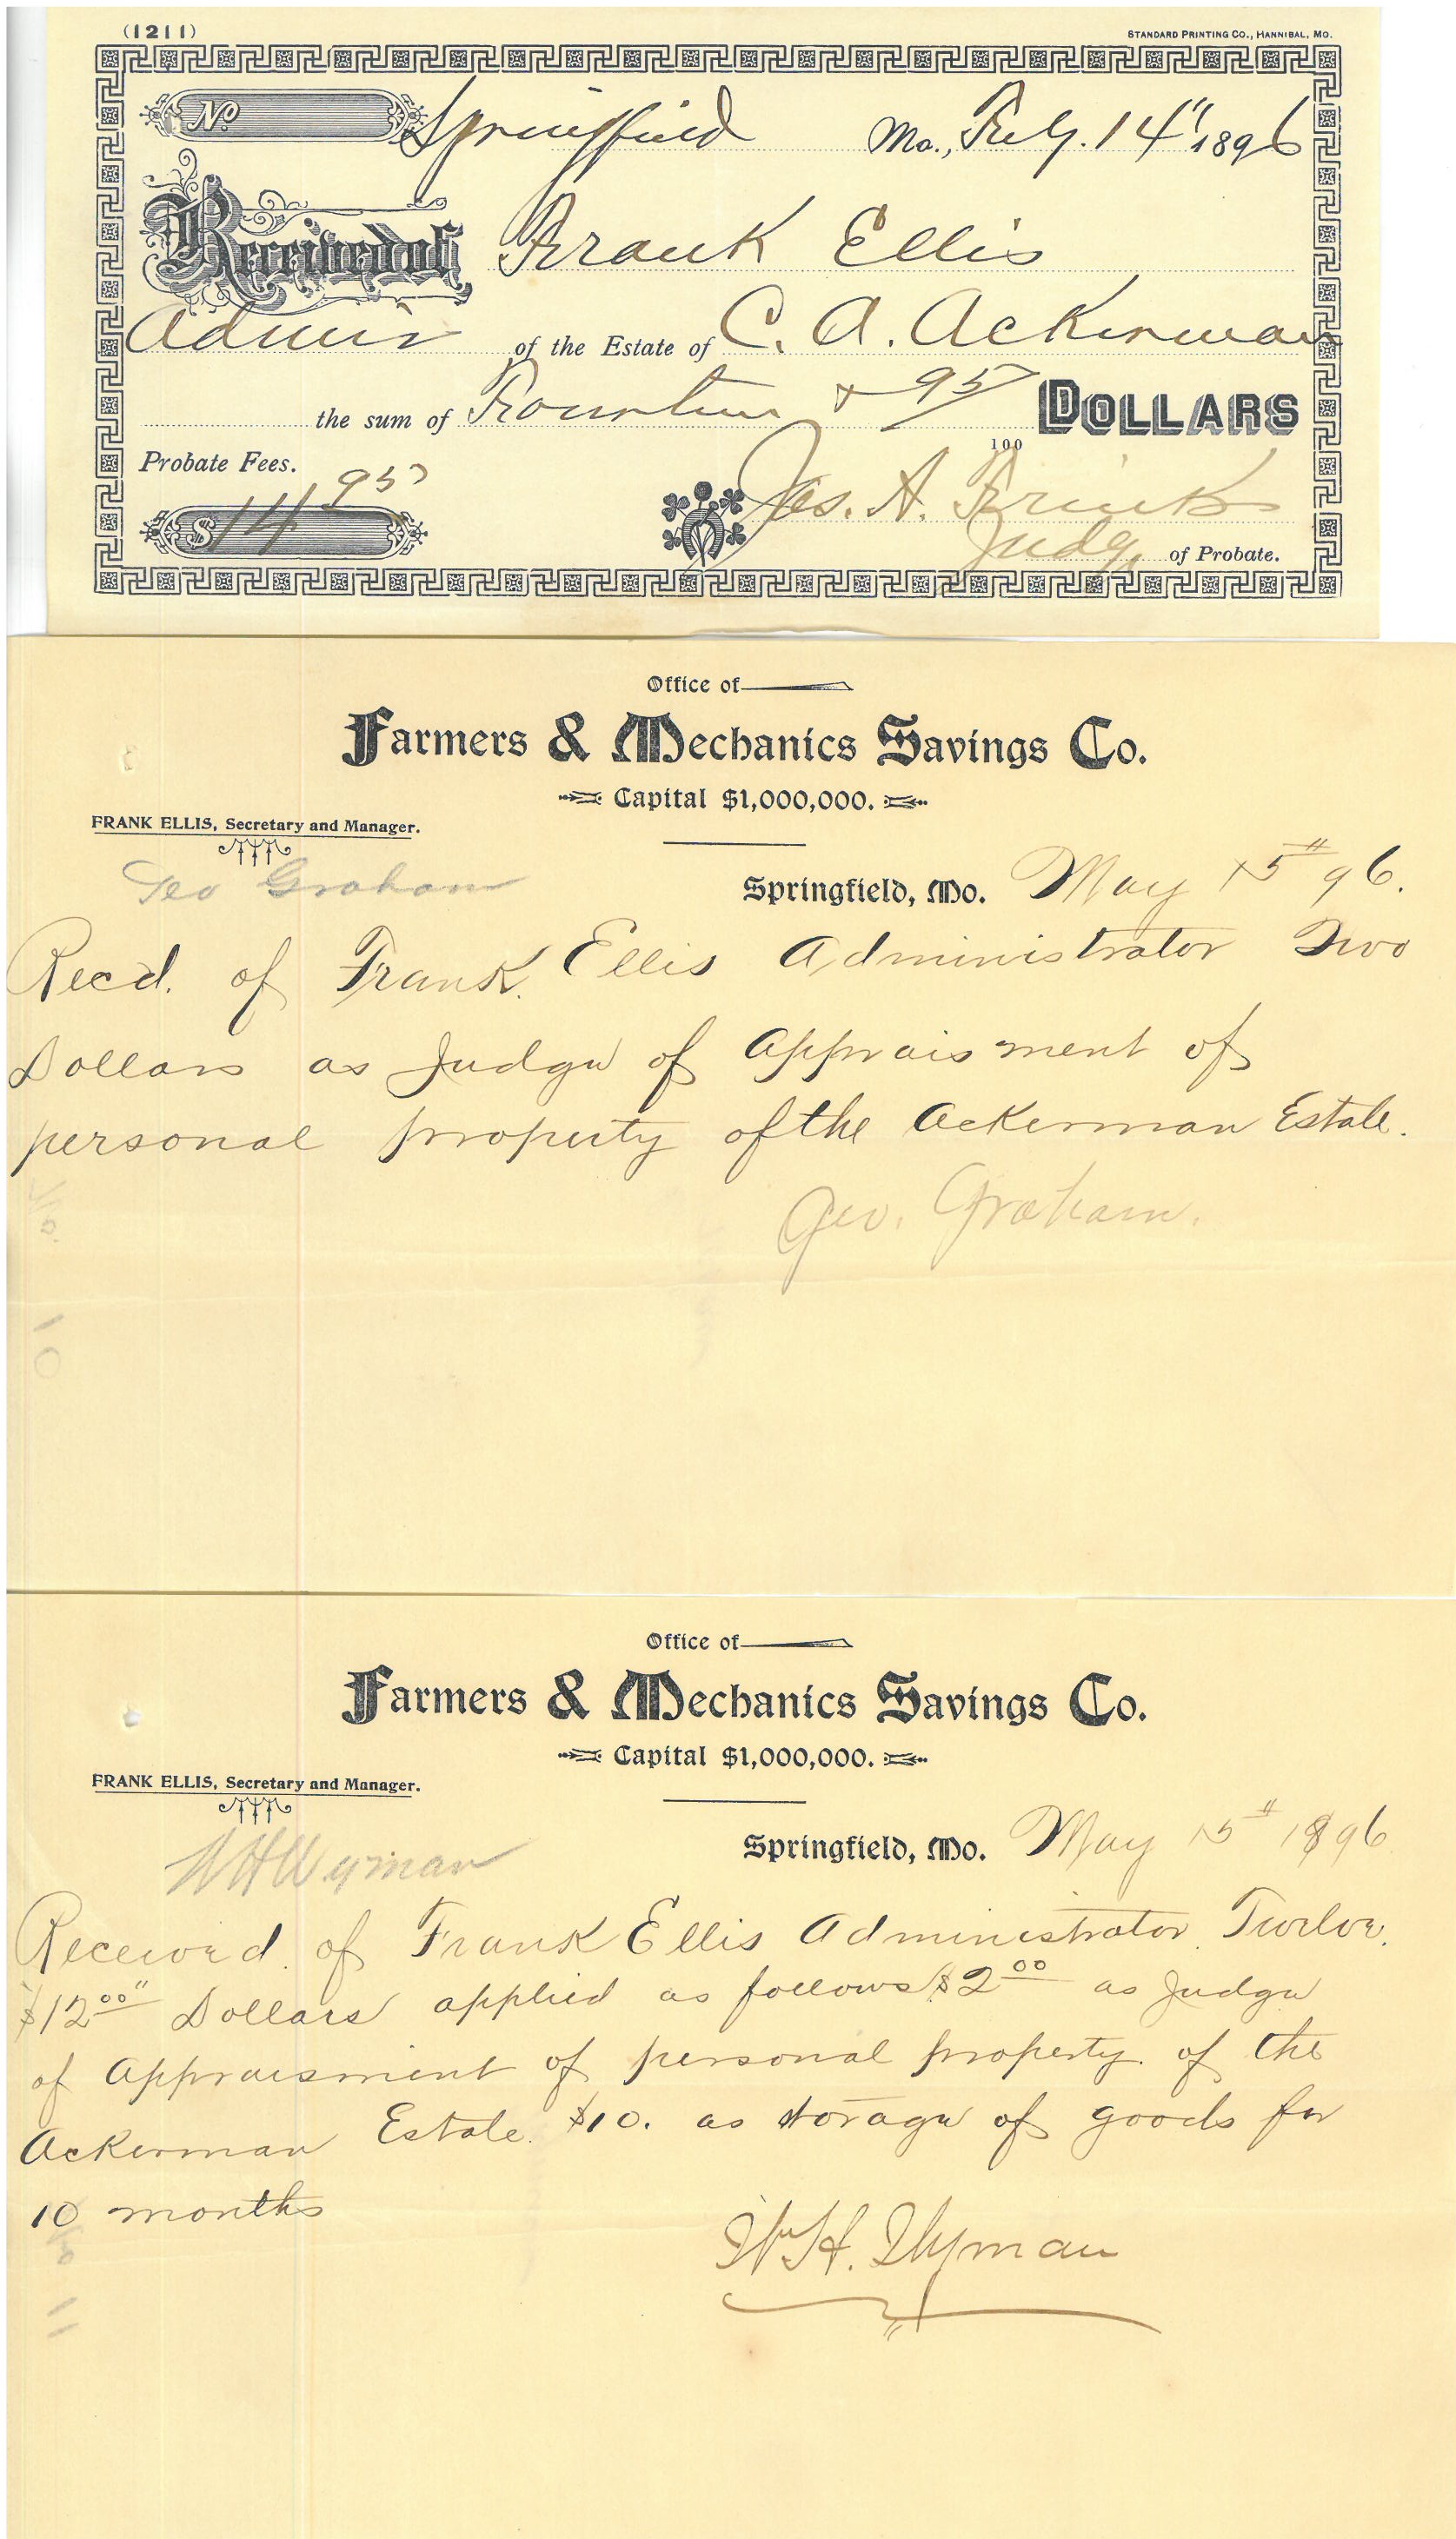 (1211)
STANDARD PRINTING CO., HANNIBAL, MO.
No Springfield Mo., Feby. 14" 1896
Received of Frank Ellis
Admir of the Estate of C. A. Ackerman
the sum of Fourteen & 95/100 DOLLARS
Probate Fees.
$14 95
Jas. A. Frink
Judge of Probate.
Office of
Farmers & Mechanics Savings Co.
Capital $1,000,000.
FRANK ELLIS, Secretary and Manager.
Geo Graham
Springfield, Mo. May 15th 96.
Recd. of Frank Ellis Administrator Two
Dollars as Judge of Appraisment of
personal property of the Ackerman Estate.
Geo. Graham.
No. 10
Office of
Farmers & Mechanics Savings Co.
Capital $1,000,000.
FRANK ELLIS, Secretary and Manager.
W H Wyman
Springfield, Mo. May 15th 1896
Received of Frank Ellis Administrator Twelve
$12 00 Dollars applied as follows $2 00 as Judge
of Appraisment of personal property of the
Ackerman Estate. $10. as storage of goods for
10 months
W. H. Wyman
No 11